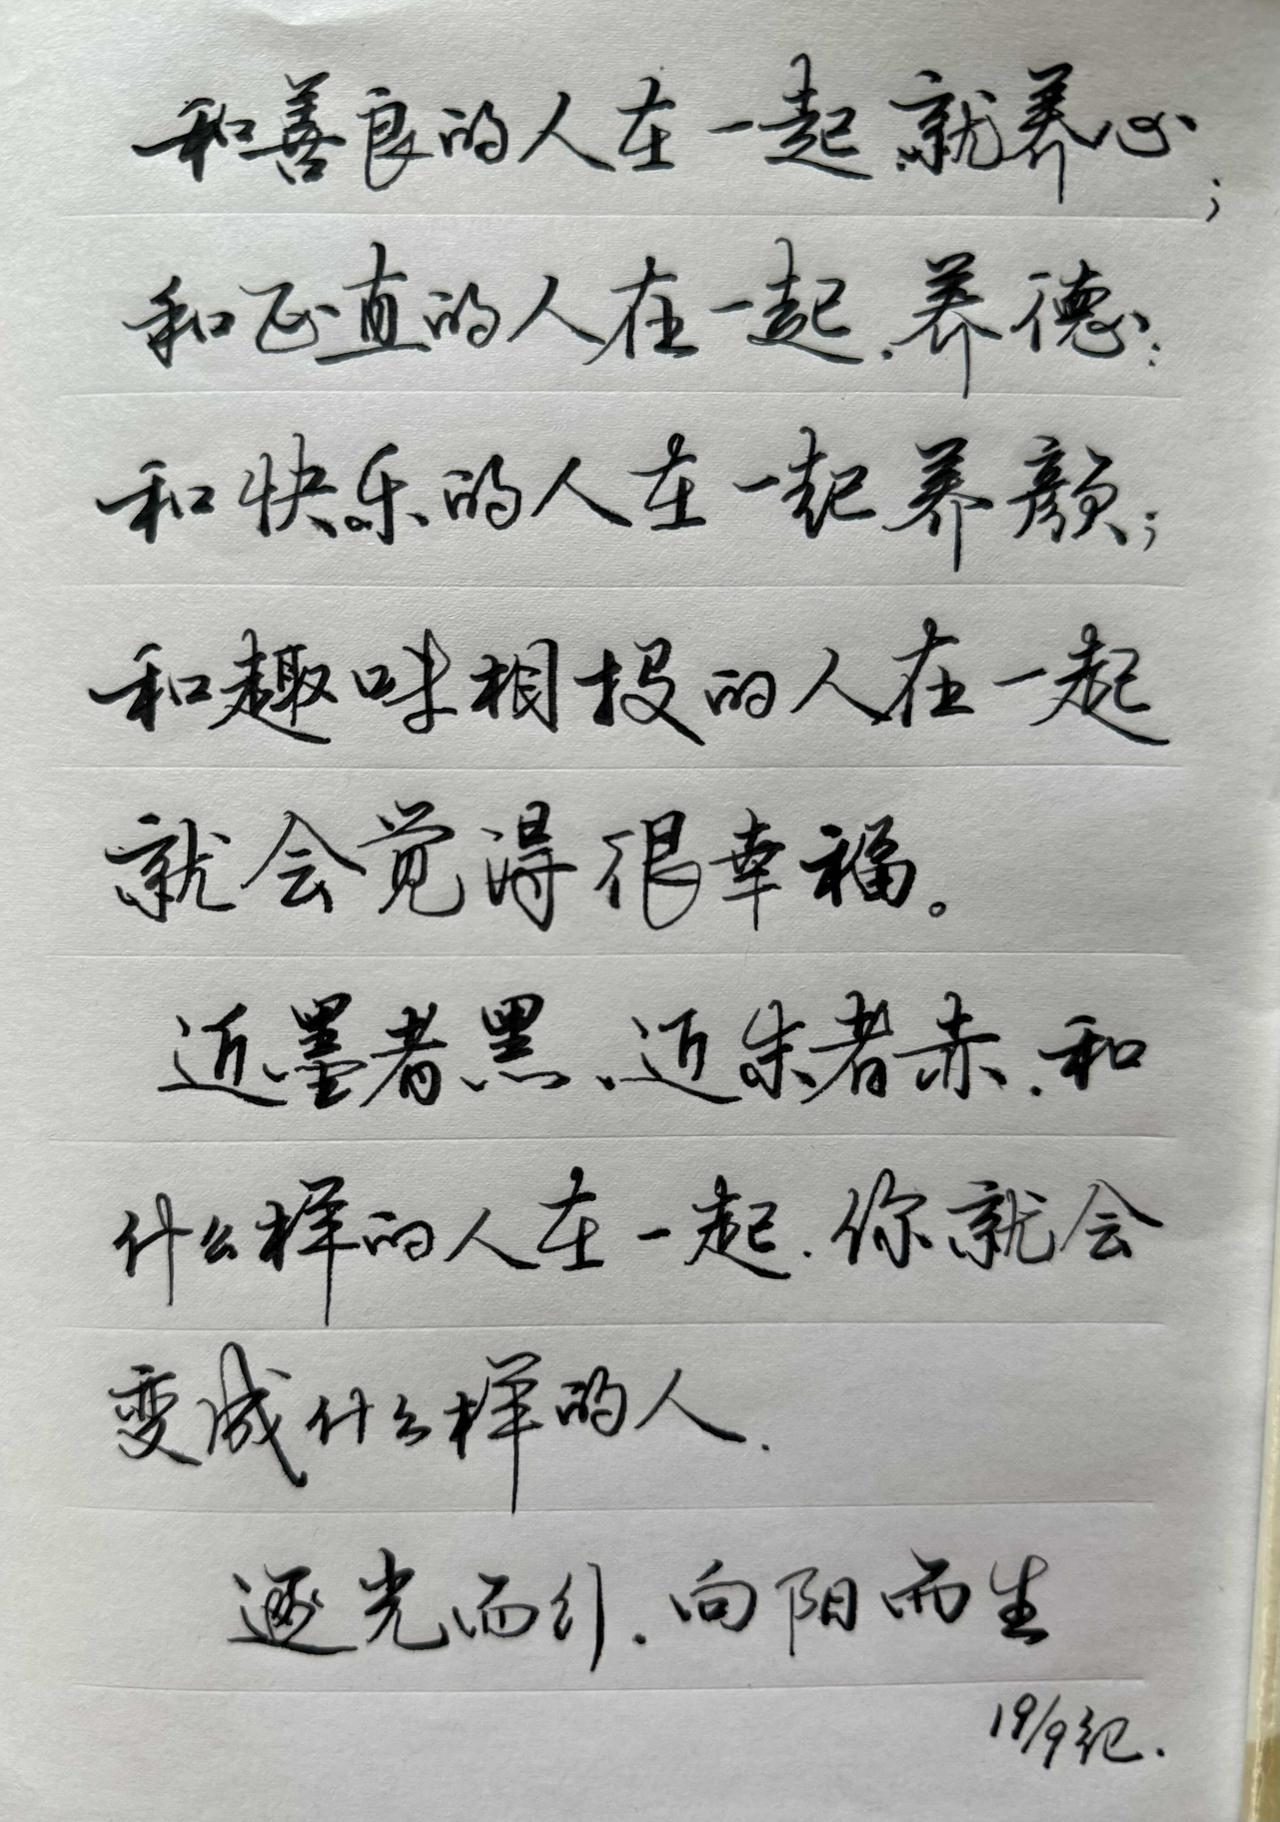 和善良的人在一起.就养心;
和正直的人在一起.养德;
和快乐的人在一起养颜;
和趣味相投的人在一起
就会觉得很幸福。
近墨者黑、近朱者赤.和
什么样的人在一起.你就会
变成什么样的人.
逐光而行.向阳而生
19/9纪.